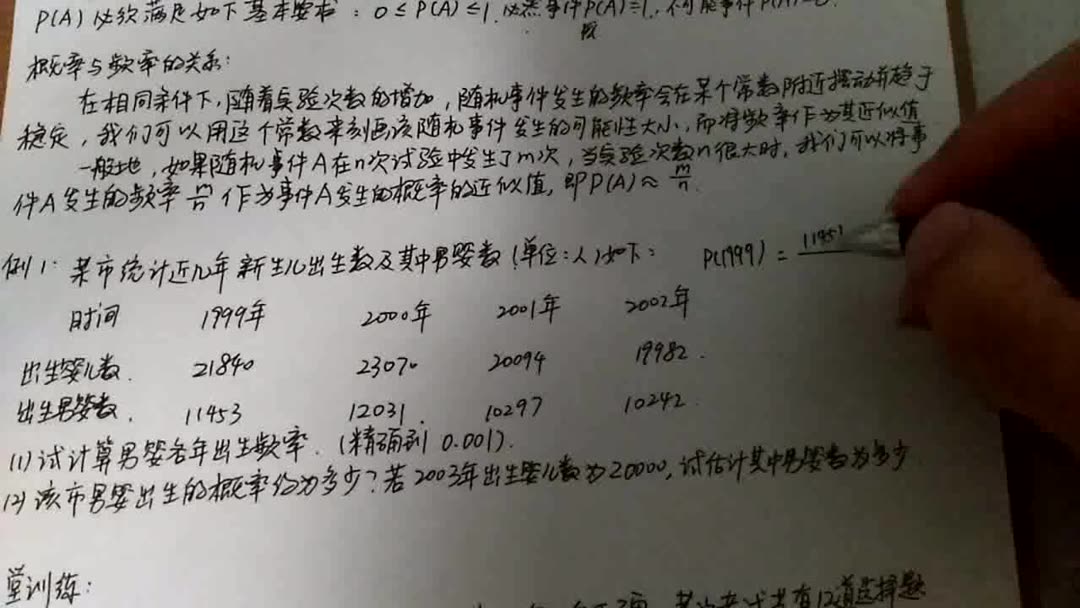 P(A)必须满足如下基本要求：0≤P(A)≤1.必然事件P(A)=1.,不可能事件P(A)=0.
概率与频率的关系:
在相同条件下,随着实验次数的增加,随机事件发生的频率会在某个常数附近摆动并趋于
稳定,我们可以用这个常数来刻画该随机事件发生的可能性大小,而将频率作为其近似值
一般地,如果随机事件A在n次试验中发生了m次,当实验次数n很大时,我们可以将事
件A发生的频率 m/n 作为事件A发生的概率的近似值,即P(A)≈ m/n.
例1:某市统计近几年新生儿出生数及其中男婴数(单位:人)如下: P(1999)=1145
时间 1999年 2000年 2001年 2002年
出生婴儿数. 21840 23070 20094 19982.
出生男婴数. 11453 12031. 10297 10242.
(1)试计算男婴各年出生频率.(精确到 0.001).
(2)该市男婴出生的概率约为多少?若2003年出生婴儿数为20000,试估计其中男婴数为多少
堂训练:
共有12道选择题